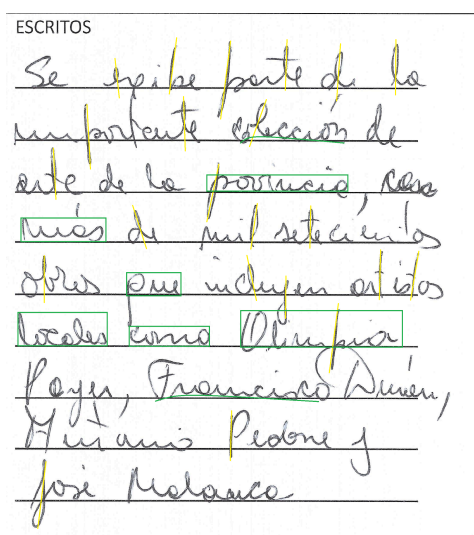 ESCRITOS
Se exibe parte de la
importante colección de
arte de la provincia, casi
más de mil setecientos
obras que incluyen artistas
locales como Olimpia
Payer, Francisco Durán,
Miriano Pedone y
José Malanca